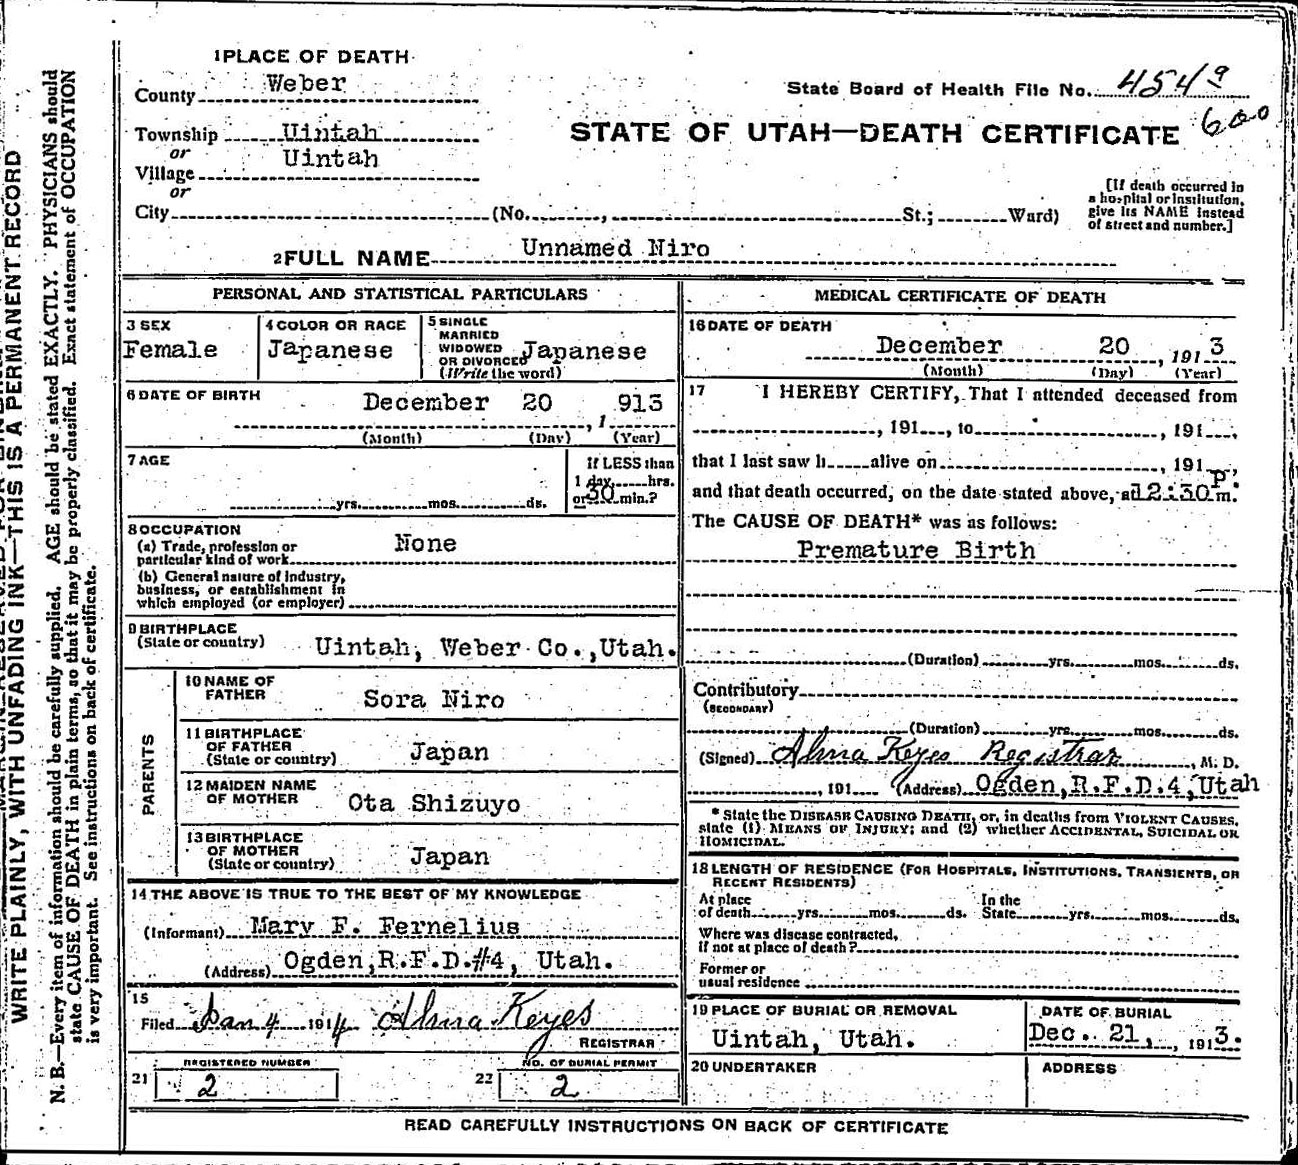 1 PLACE OF DEATH
County Weber
State Board of Health File No. 454 a
600
Township Uintah
or
Village Uintah
or
STATE OF UTAH—DEATH CERTIFICATE
City (No. , St.; Ward)
[If death occurred in
a hospital or institution,
give its NAME instead
of street and number.]
2 FULL NAME Unnamed Niro
PERSONAL AND STATISTICAL PARTICULARS
3 SEX
Female
4 COLOR OR RACE
Japanese
5 SINGLE
MARRIED
WIDOWED
OR DIVORCED Japanese
(Write the word)
6 DATE OF BIRTH
December 20 913
, 1
(Month) (Day) (Year)
7 AGE
yrs. mos. ds.
If LESS than
1 day, hrs.
or 30 min.?
8 OCCUPATION
(a) Trade, profession or
particular kind of work None
(b) General nature of industry,
business, or establishment in
which employed (or employer)
9 BIRTHPLACE
(State or country) Uintah, Weber Co.,Utah.
PARENTS
10 NAME OF
FATHER Sora Niro
11 BIRTHPLACE
OF FATHER
(State or country) Japan
12 MAIDEN NAME
OF MOTHER Ota Shizuyo
13 BIRTHPLACE
OF MOTHER
(State or country) Japan
14 THE ABOVE IS TRUE TO THE BEST OF MY KNOWLEDGE
(Informant) Mary F. Fernelius
(Address) Ogden,R.F.D.#4, Utah.
15
Filed Jan 4 1914 Alma Keyes
REGISTRAR
REGISTERED NUMBER
21 2
NO. OF BURIAL PERMIT
22 2
MEDICAL CERTIFICATE OF DEATH
16 DATE OF DEATH
December 20 , 191 3
(Month) (Day) (Year)
17 I HEREBY CERTIFY, That I attended deceased from
, 191 , to , 191 ,
that I last saw h alive on , 191 ,
and that death occurred, on the date stated above, at 12:30 P. m.
The CAUSE OF DEATH* was as follows:
Premature Birth
(Duration) yrs. mos. ds.
Contributory
(SECONDARY)
(Duration) yrs. mos. ds.
(Signed) Alma Keyes Registrar , M. D.
, 191 (Address) Ogden,R.F.D.4,Utah
* State the DISEASE CAUSING DEATH, or, in deaths from VIOLENT CAUSES,
state (1) MEANS OF INJURY; and (2) whether ACCIDENTAL, SUICIDAL OR
HOMICIDAL.
18 LENGTH OF RESIDENCE (FOR HOSPITALS, INSTITUTIONS, TRANSIENTS, OR
RECENT RESIDENTS)
At place
of death yrs. mos. ds.
In the
State yrs. mos. ds.
Where was disease contracted,
if not at place of death?
Former or
usual residence
19 PLACE OF BURIAL OR REMOVAL
Uintah, Utah.
DATE OF BURIAL
Dec. 21, , 1913.
20 UNDERTAKER
ADDRESS
READ CAREFULLY INSTRUCTIONS ON BACK OF CERTIFICATE
WRITE PLAINLY, WITH UNFADING INK—THIS IS A PERMANENT RECORD
N. B.—Every item of information should be carefully supplied. AGE should be stated EXACTLY. PHYSICIANS should
state CAUSE OF DEATH in plain terms, so that it may be properly classified. Exact statement of OCCUPATION
is very important. See instructions on back of certificate.